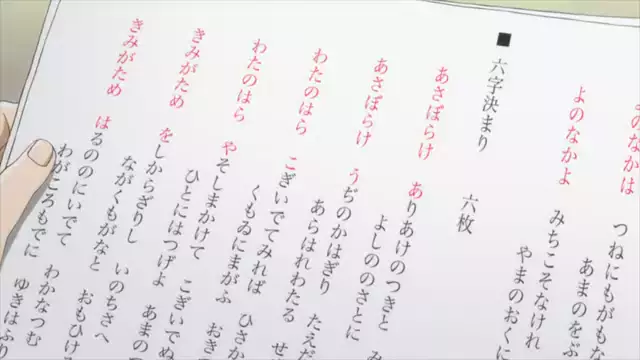 よのなかは つねにもがもな
あまのをぶ
よのなかよ みちこそなけれ
やまのおくに
■ 六字決まり 六枚
あさぼらけ ありあけのつきと
よしののさとに み
あさぼらけ うぢのかはぎり たえだ
あらはれわたる せ
わたのはら こぎいでてみれば ひさか
くもゐにまがふ おき
わたのはら やそしまかけて こぎいでぬ
ひとにはつげよ あまの
きみがため をしからざりし いのちさへ
ながくもがなと おもひける
きみがため はるののにいでて わかなつむ
わがころもでに ゆきはふり